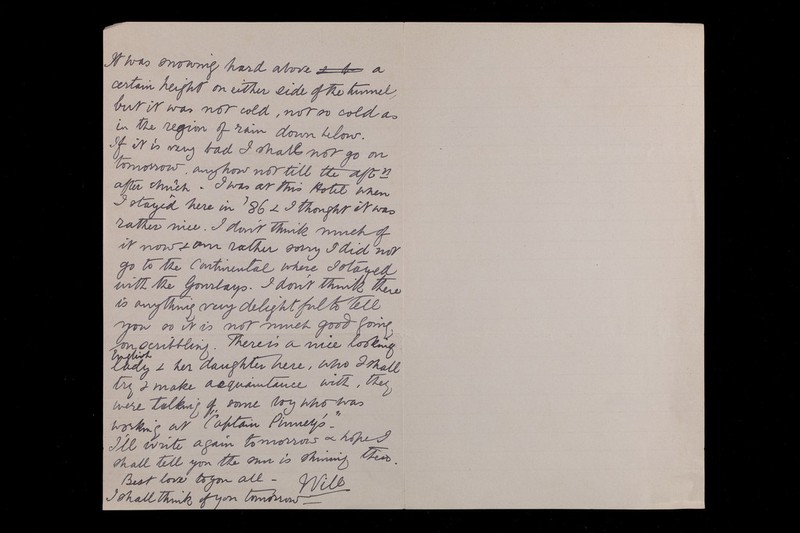 It was snowing hard above a
certain height on either side of the tunnel,
but it was not cold, not so cold as
in the region of rain down below.
If it is very bad I shall not go on
tomorrow. anyhow not till the aftn
after church - I was at this Hotel when
I stayed here in '86 & I thought it was
rather nice. I don't think much of
it now & am rather sorry I did not
go to the Continental where I stayed
with the Gourlays. I don't think there
is anything very delightful to tell
you so it is not much good going
on scribbling. There is a nice looking
English
lady & her daughter here, who I shall
try & make acquaintance with, they
were talking of some boy who was
working at "Captain Pinney's."
I'll write again tomorrow & hope I
shall tell you the sun is shining then.
Best love to you all - Will
I shall think of you tomorrow -